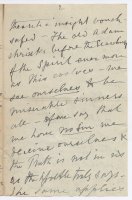 2.
there is a insight vouch
safed — The old Adam
shrieks before the teaching
of the Spirit even more
as
This
see ourselves to be
miserable sinners
all — if we say that
we have no sin we
deceive ourselves &
the truth is not in us
as the Apostle truly says.
The same applies